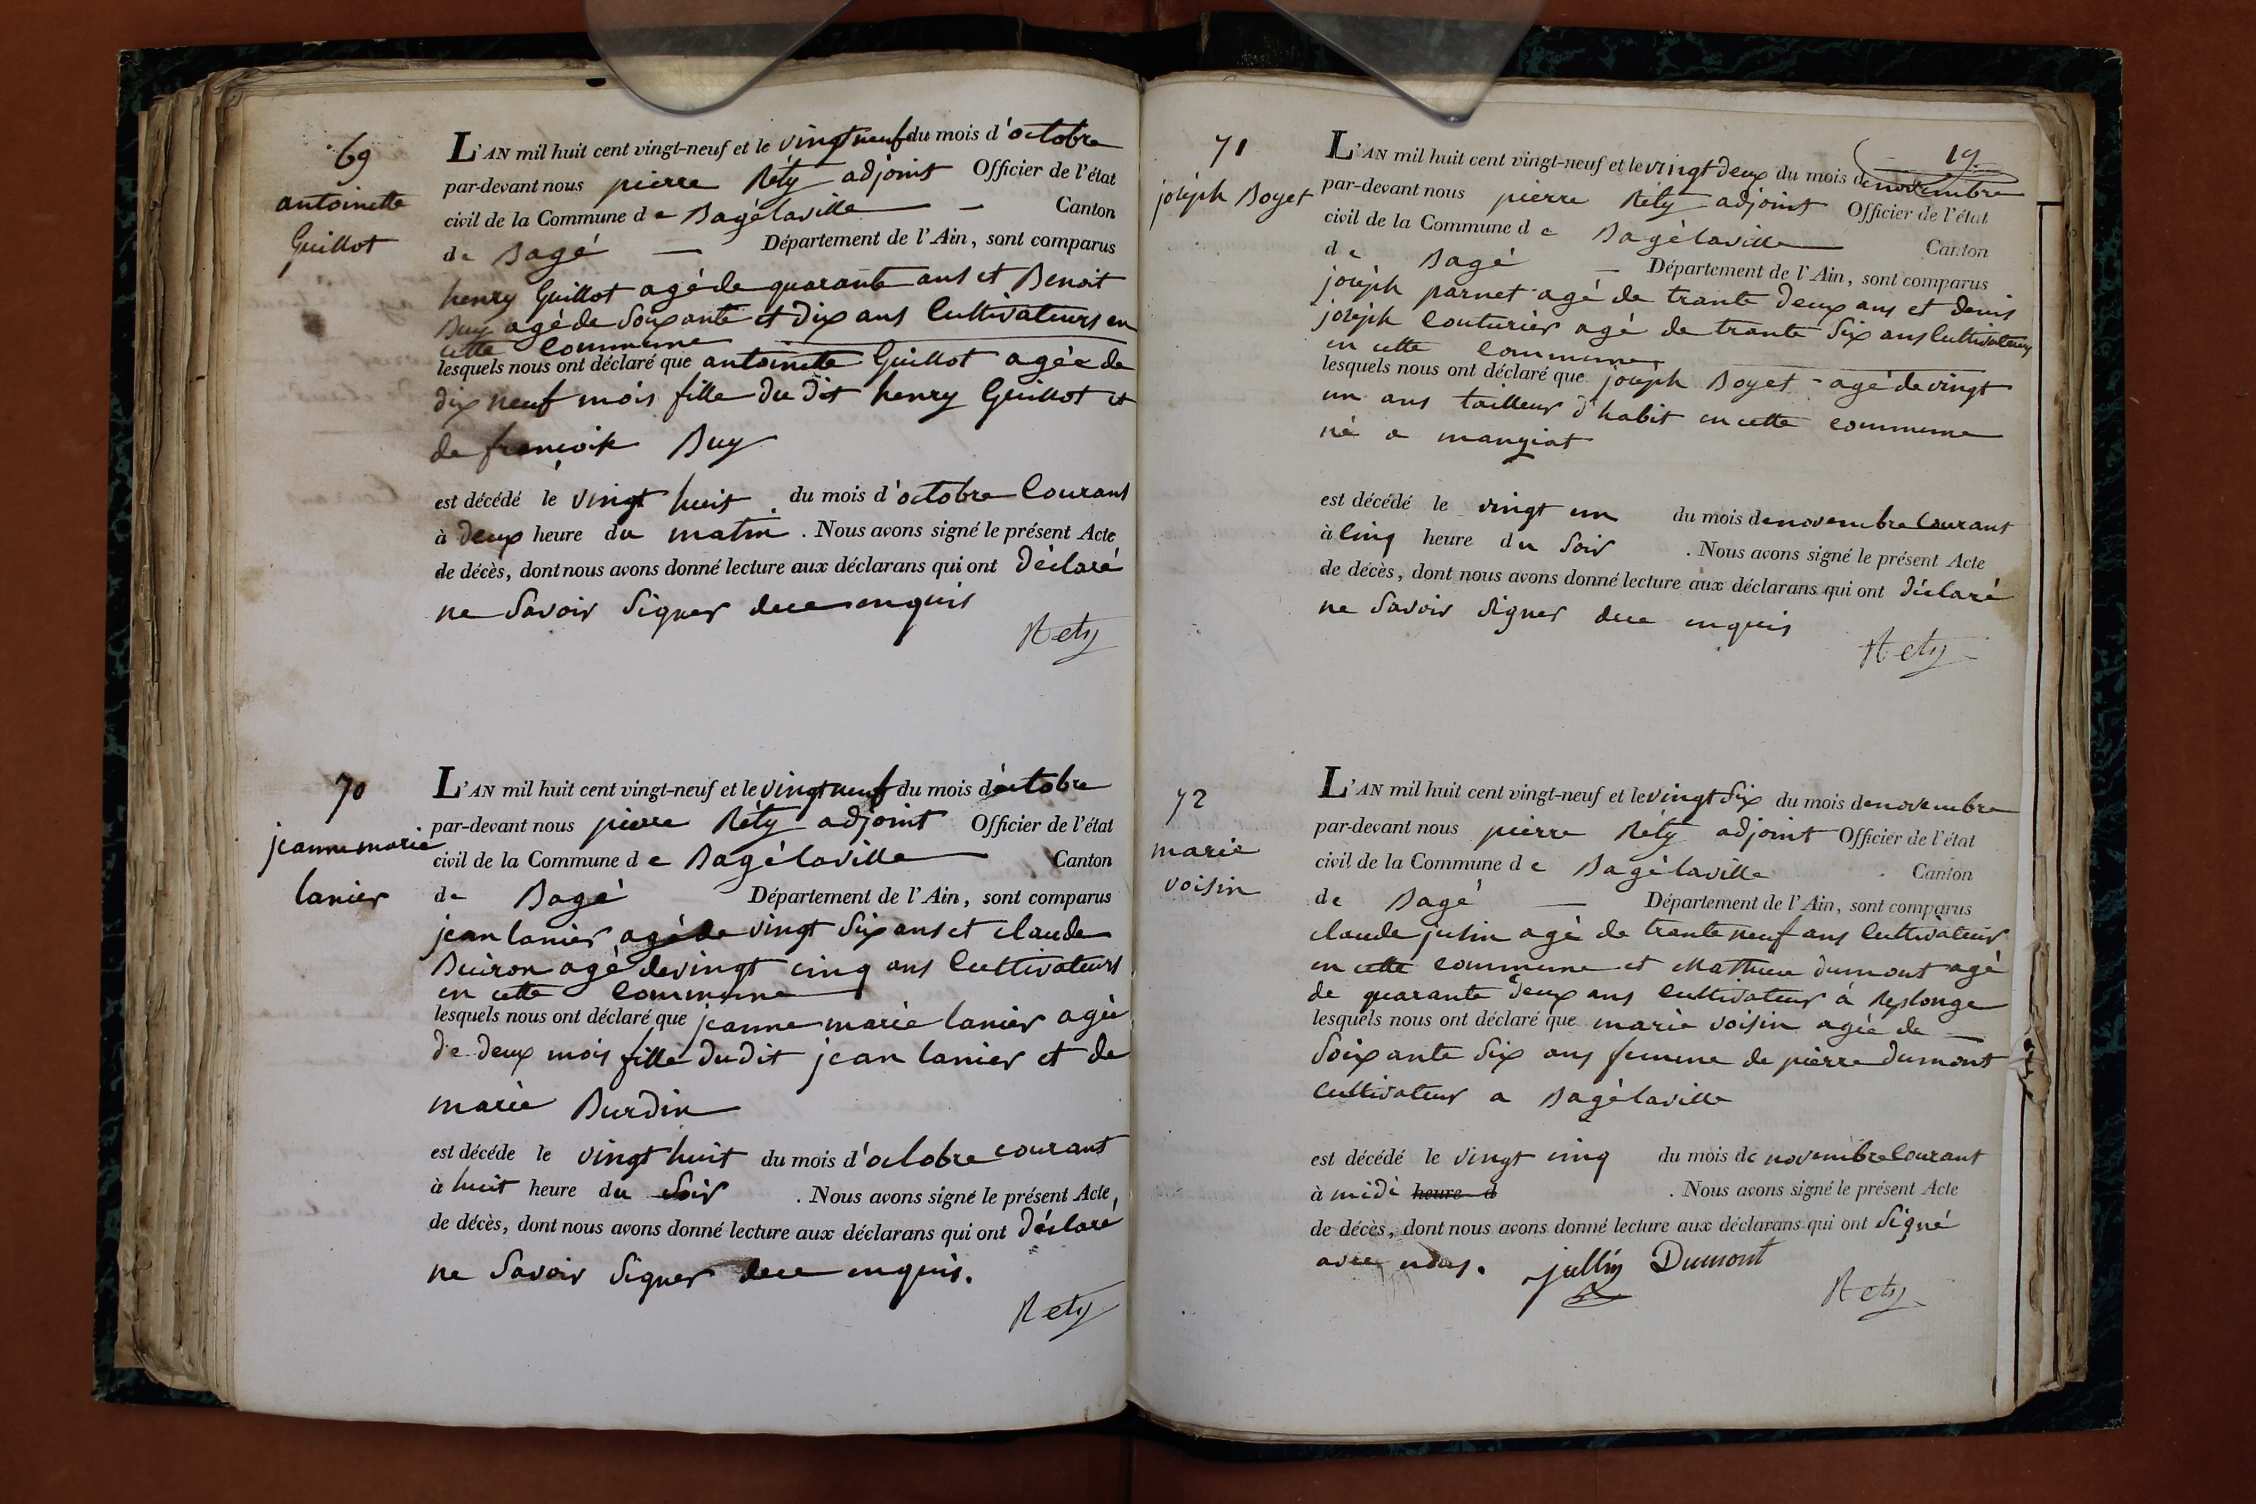 69
antoinette
Guillot
L'AN mil huit cent vingt-neuf et le vingt neuf du mois d'octobre
par-devant nous pierre Réty adjoint Officier de l'état
civil de la Commune de Bagélaville Canton
de Bagé Département de l'Ain, sont comparus
henry Guillot agé de quarante ans et Benoit
Buy agé de Soixante et dix ans Cultivateurs en
cette Commune
lesquels nous ont déclaré que antoinette Guillot agée de
dix neuf mois fille du dit henry Guillot et
de francoise Buy
est décédé le vingt huit du mois d'octobre Courant
à deux heure du matin. Nous avons signé le présent Acte
de décès, dont nous avons donné lecture aux déclarans qui ont déclaré
ne Savoir Signer de ce enquis
Rety
70
jeanne marie
lanier
L'AN mil huit cent vingt-neuf et le vingt neuf du mois d'octobre
par-devant nous pierre Réty adjoint Officier de l'état
civil de la Commune de Bagélaville Canton
de Bagé Département de l'Ain, sont comparus
jean lanier agé de vingt Six ans et claude
Buiron agé de vingt cinq ans Cultivateurs
en cette Commune
lesquels nous ont déclaré que jeanne marie lanier agée
de deux mois fille dudit jean lanier et de
marie Burdin
est décéde le vingt huit du mois d'octobre courant
à huit heure du Soir. Nous avons signé le présent Acte,
de décès, dont nous avons donné lecture aux déclarans qui ont déclaré
ne Savoir Signer de ce enquis.
Rety
19
71
joséph Boyet
L'AN mil huit cent vingt-neuf et le vingt deux du mois de novembre
par-devant nous pierre Réty adjoint Officier de l'état
civil de la Commune de Bagélaville Canton
de Bagé Département de l'Ain, sont comparus
joséph parnet agé de trante deux ans et denis
joséph Couturier agé de trante Six ans Cultivateurs
en cette commune
lesquels nous ont déclaré que joséph Boyet agé de vingt
un ans tailleur d'habit en cette commune
né a manziat
est décédé le vingt un du mois de novembre Courant
à Cinq heure du Soir. Nous avons signé le présent Acte
de décès, dont nous avons donné lecture aux déclarans qui ont déclaré
ne Savoir Signer de ce enquis
Rety
72
marie
voisin
L'AN mil huit cent vingt-neuf et le vingt Six du mois de novembre
par-devant nous pierre Réty adjoint Officier de l'état
civil de la Commune de Bagélaville Canton
de Bagé Département de l'Ain, sont comparus
claude julin agé de trante neuf ans Cultivateur
en cette commune et Mathieu dumont agé
de quarante deux ans cultivateur à Replonge
lesquels nous ont déclaré que marie voisin agée de
Soixante Six ans femme de pierre dumont
Cultivateur a Bagélaville
est décédé le vingt cinq du mois de novembre Courant
à midi heure d. Nous avons signé le présent Acte
de décès, dont nous avons donné lecture aux déclarans qui ont Signé
avec nous. jullin Dumont
Rety